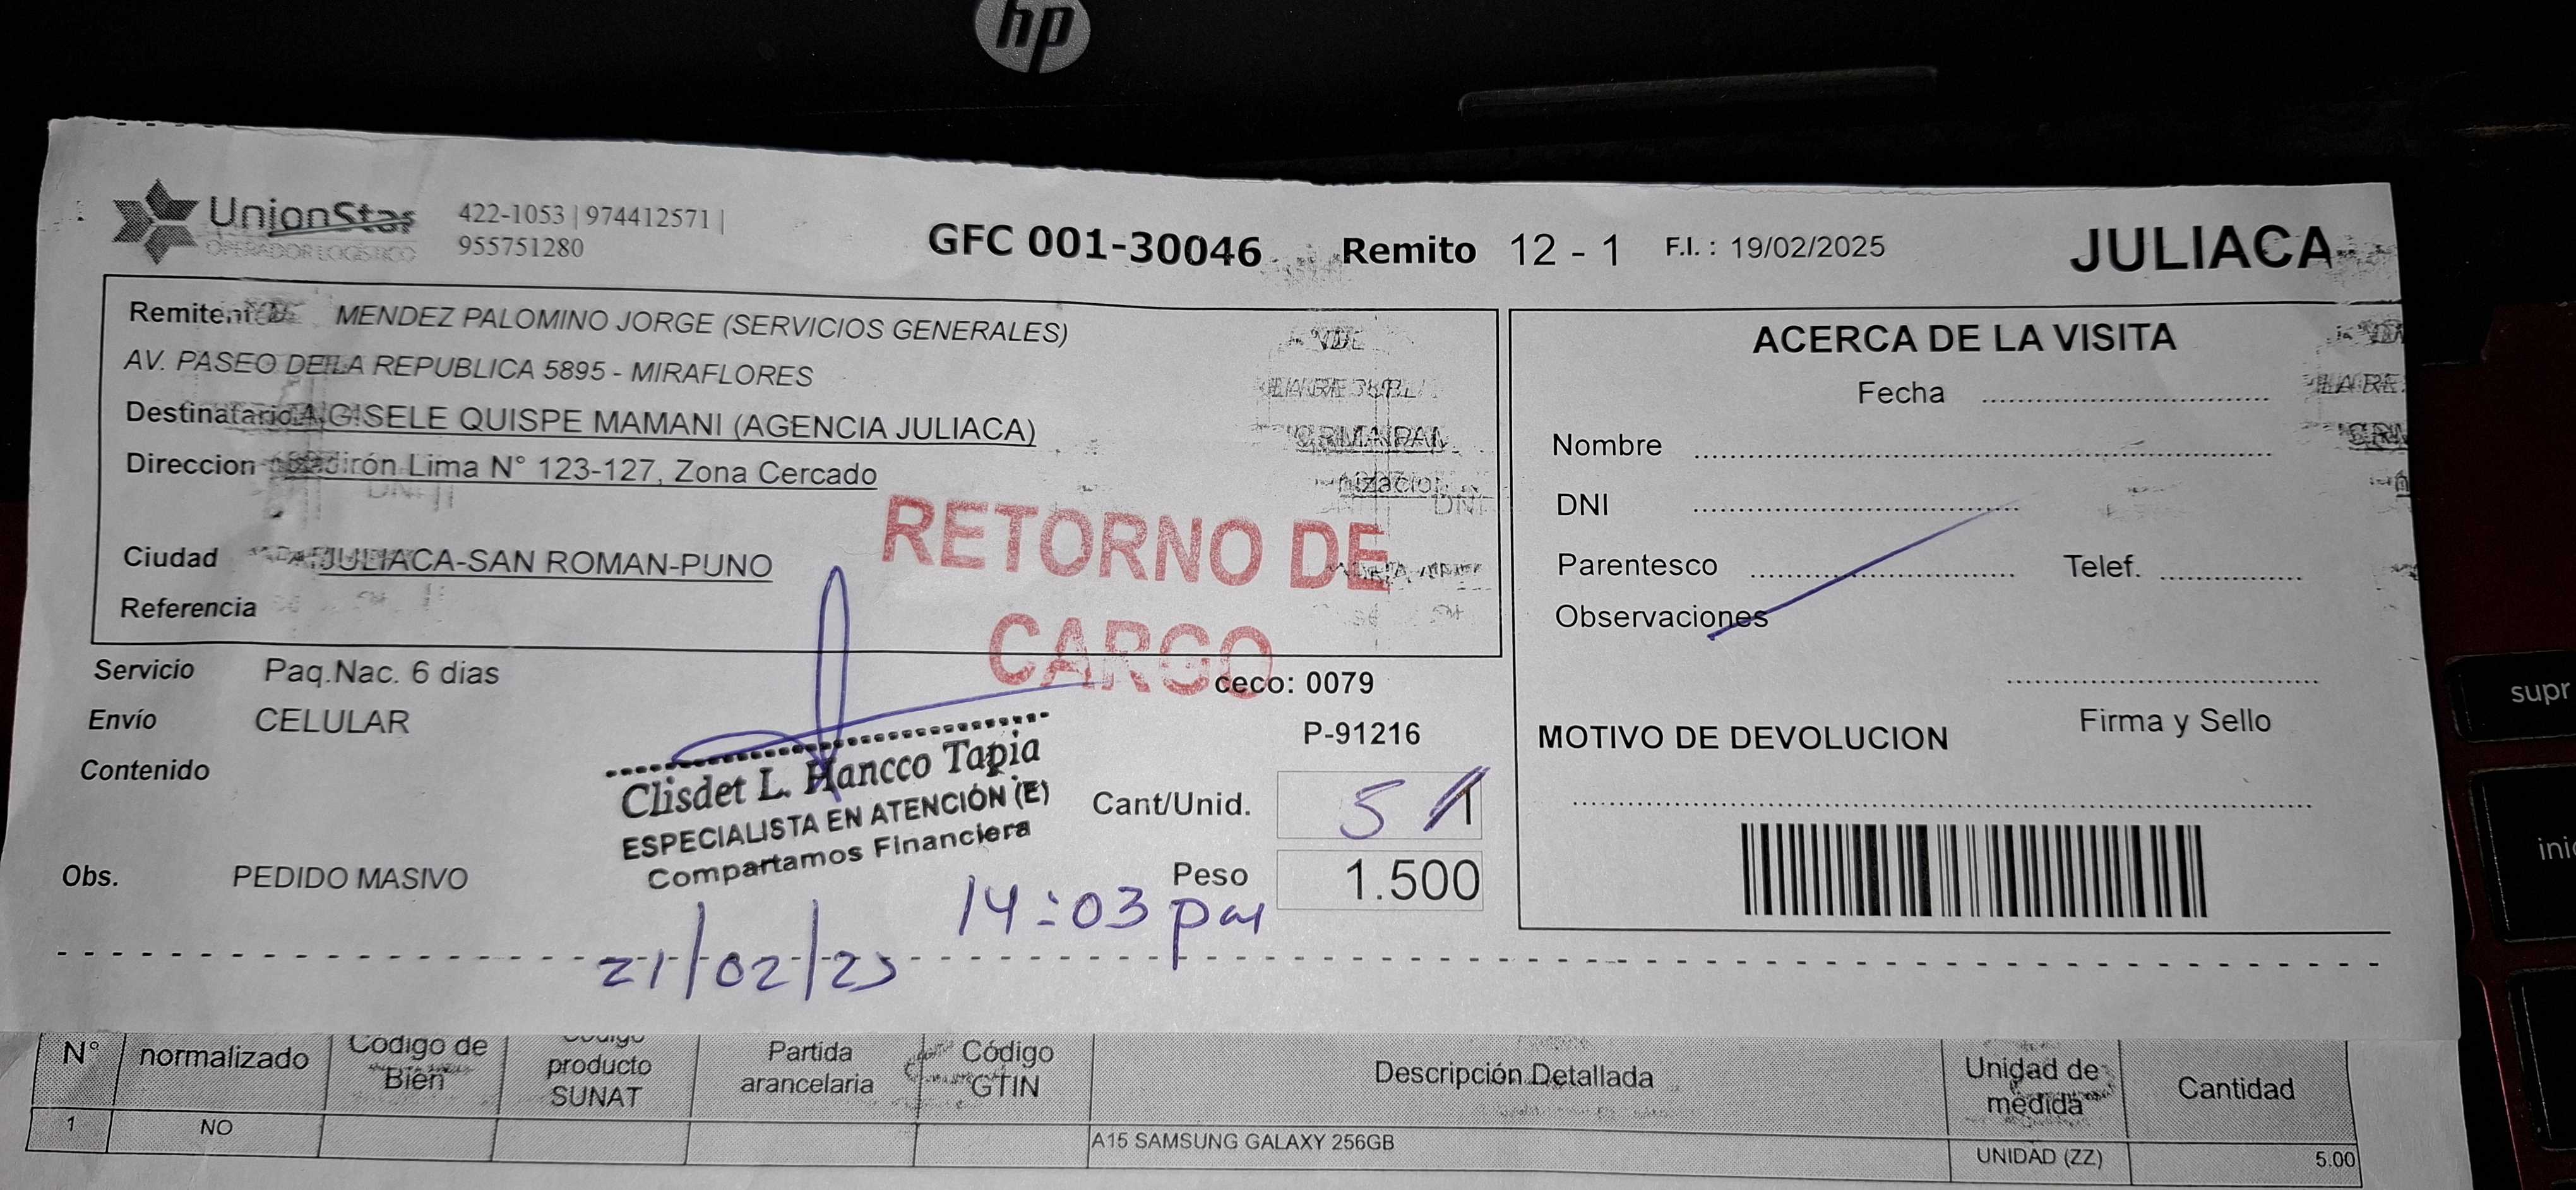 hp
UnionStar
OPERADOR LOGÍSTICO
422-1053 | 974412571 |
955751280
GFC 001-30046
Remito 12 - 1
F.I. : 19/02/2025
JULIACA
Remitente MENDEZ PALOMINO JORGE (SERVICIOS GENERALES)
AV. PASEO DE LA REPUBLICA 5895 - MIRAFLORES
Destinatario GISELE QUISPE MAMANI (AGENCIA JULIACA)
Direccion Jirón Lima N° 123-127, Zona Cercado
Ciudad JULIACA-SAN ROMAN-PUNO
Referencia
RETORNO DE
CARGO
Servicio Paq.Nac. 6 dias
Envío CELULAR
Contenido
Obs. PEDIDO MASIVO
ceco: 0079
P-91216
Cant/Unid. 5 1
Peso 1.500
Clisdet L. Hancco Tapia
ESPECIALISTA EN ATENCIÓN (E)
Compartamos Financiera
14:03 pm
21/02/25
ACERCA DE LA VISITA
Fecha
Nombre
DNI
Parentesco
Telef.
Observaciones
Firma y Sello
MOTIVO DE DEVOLUCION
N°
normalizado
Código de
Bien
producto
SUNAT
Partida
arancelaria
Código
GTIN
Descripción Detallada
Unidad de
medida
Cantidad
1 NO A15 SAMSUNG GALAXY 256GB UNIDAD (ZZ) 5.00
supr